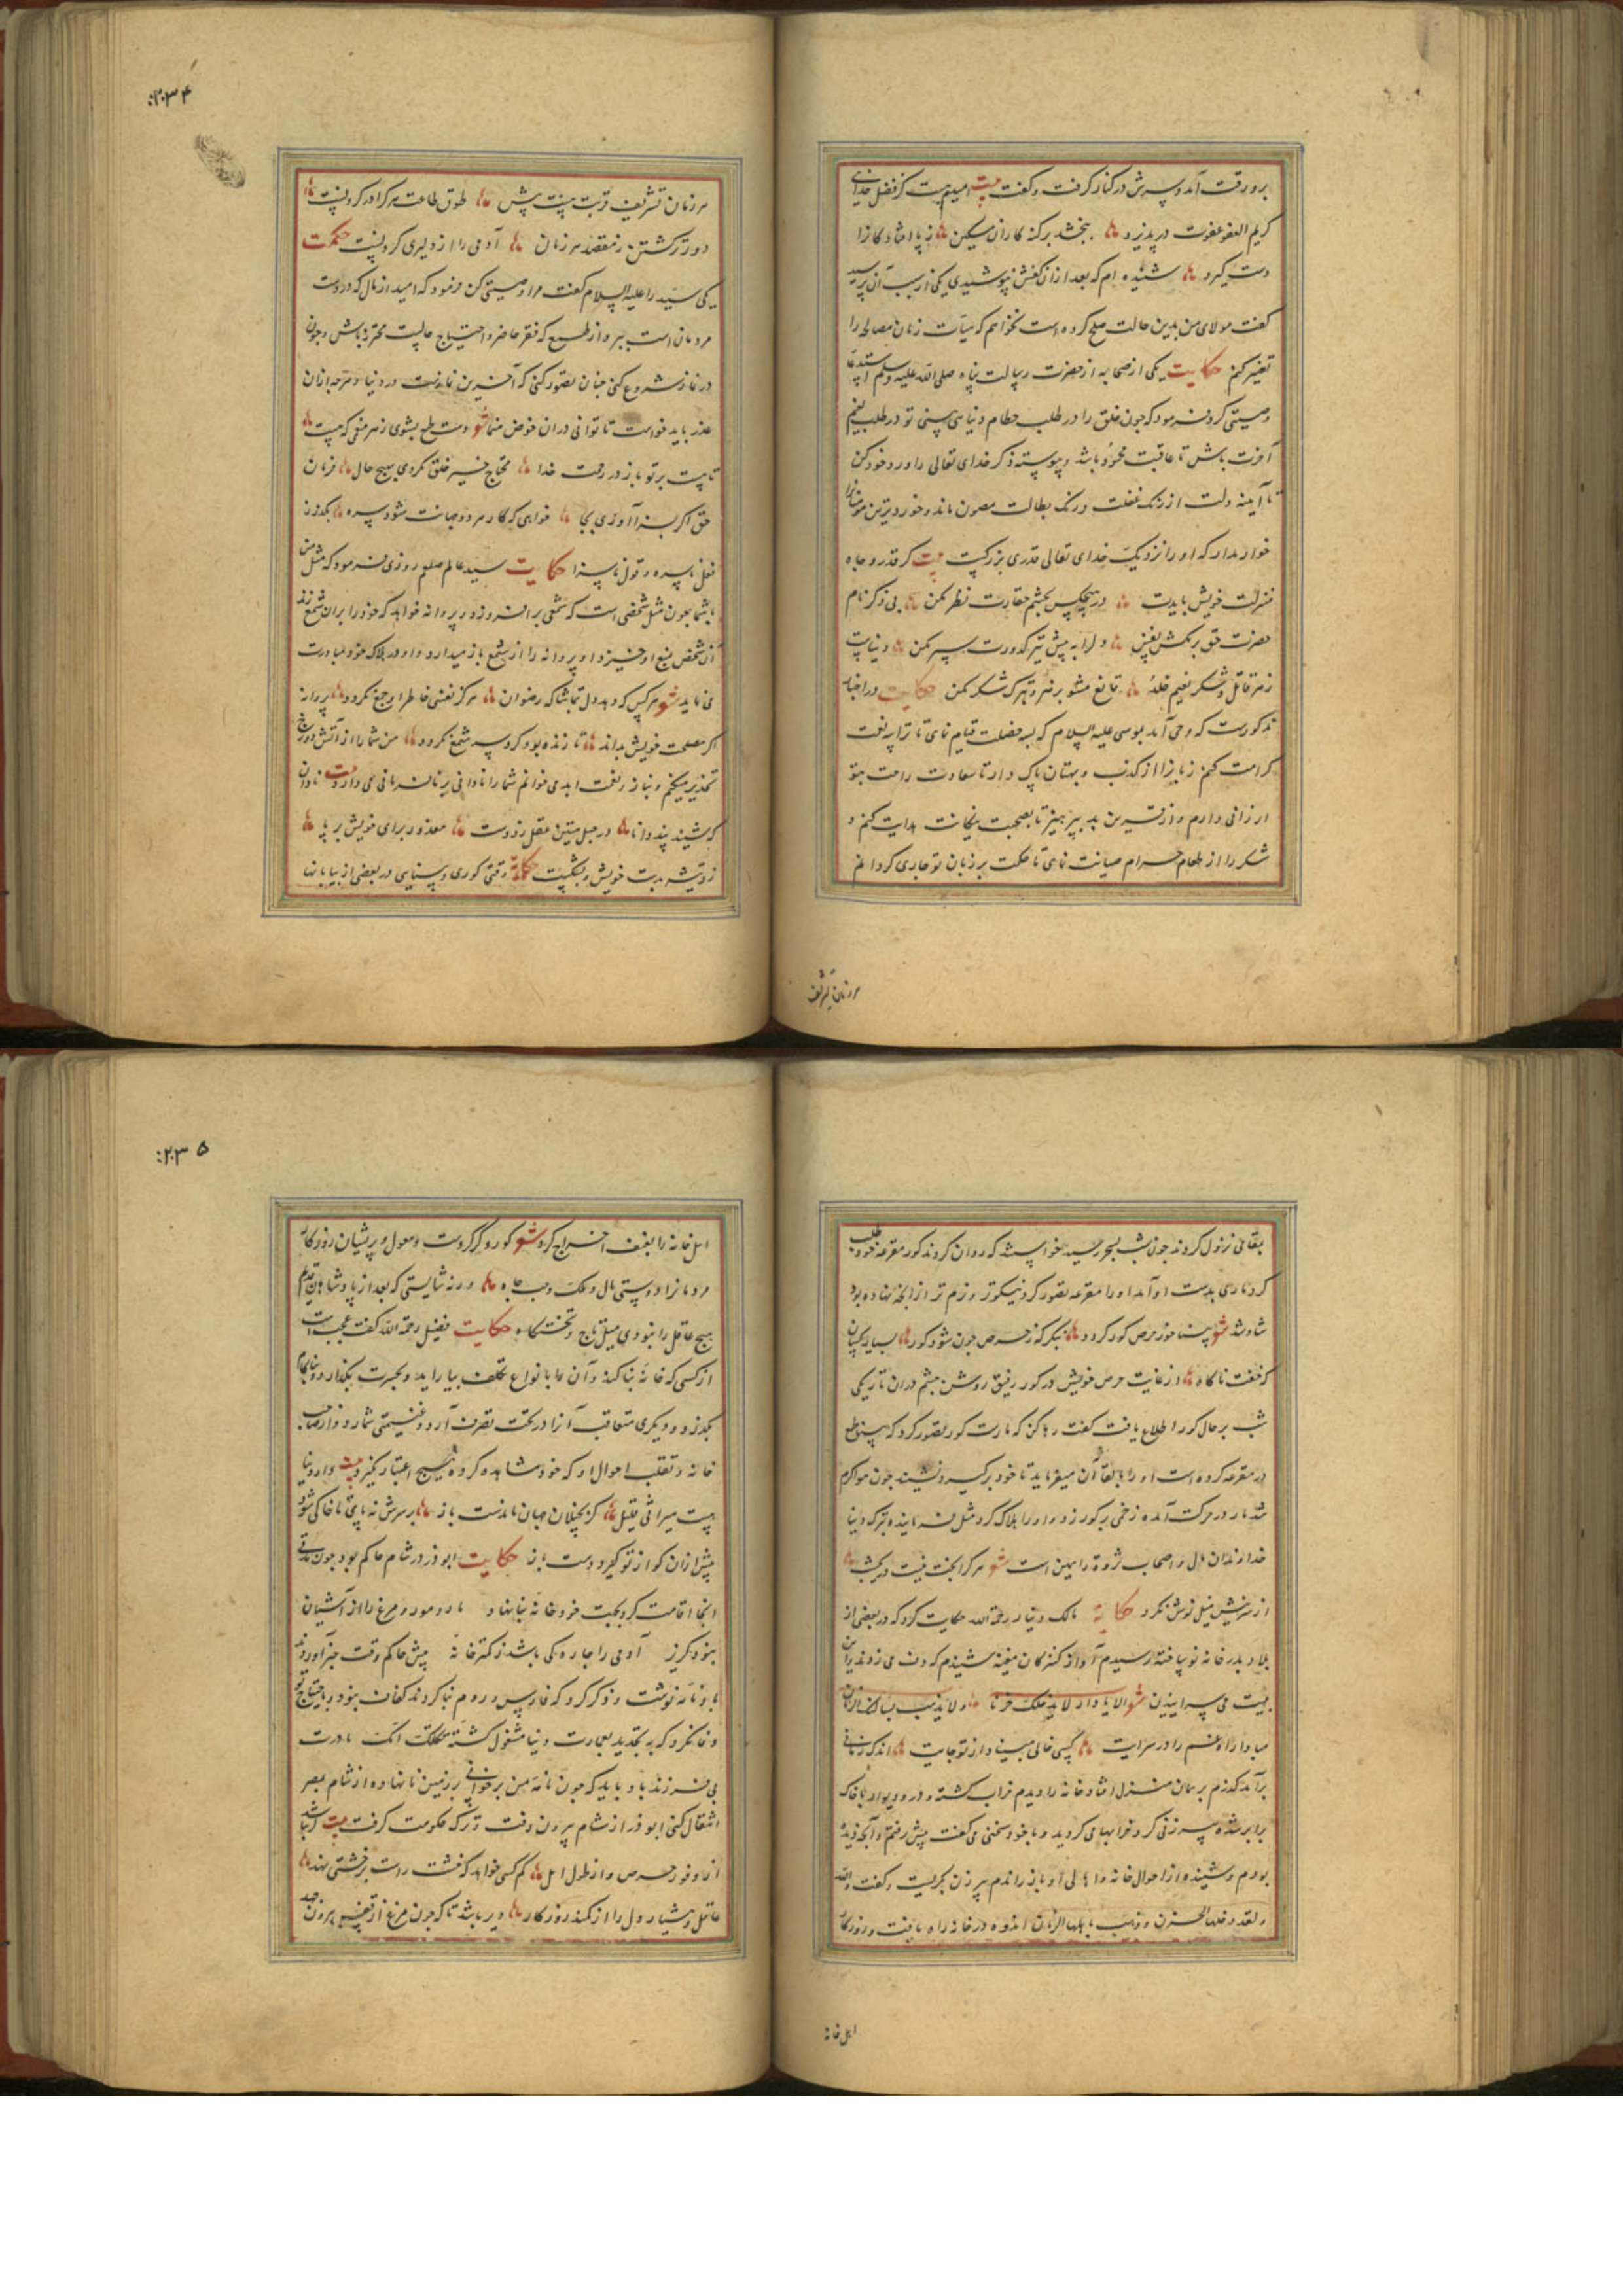 برو رقت آمد و سرش در کنار گرفت و گفت بیت امیدیست کز فضل خدای
کریم العفو عفوت در پذیرد ببخشد بر گنه کاران مسکین ز پا افتادگان را
دست گیرد شنیده‌ام که بعد از آن کفش نپوشیدی یکی از سبب آن پرسید
گفت مولای من بدین حالت صلح کرده است نخواهم که هیأت زمان مصالحه را
تغییر کنم حکایت یکی از صحابه از حضرت رسالت پناه صلی الله علیه وسلم استدعا
وصیتی کرد فرمود که چون خلق را در طلب حطام دنیا می بینی تو در طلب نعیم
آخرت باش تا عاقبت محمود باشد و پیوسته ذکر خدای تعالی را ورد خود کن
تا آیینه دلت از زنگ غفلت و رنگ بطالت مصون ماند و خوردترین مومنان را
خوار مدار که او را نزدیک خدای تعالی قدری بزرگیست بیت گر قدر و جاه
منزلت خویش بایدت در هیچکس بچشم حقارت نظر مکن بی ذکر نام
حضرت حق بر مکش نفس دل را به پیش تیر کدورت سپر مکن دنیاست
زهر قاتل و شکر نعیم خلد قانع مشو بزهر و ترک شکر مکن حکایت در اخبار
مذکورست که وحی آمد بموسی علیه السلام که بسه خصلت قیام نمای تا ترا سه نعمت
کرامت کنم زبان را از کذب و بهتان پاک دار تا سعادت راحت بتو
ارزانی دارم و از قرین بد بپرهیز تا بصحبت نیکانت هدایت کنم و
شکم را از طعام حرام صیانت نمای تا حکمت بر زبان تو جاری گردانم
هر زمان تشریف
۲۳۴
هر زمان تشریف قربت بیشت پیش طوق طاعت هر که را در گردنست
دورتر گشتن ز مقصد هر زمان آدمی را از دلیری کردنست حکمت
یکی سید را علیه السلام گفت مرا وصیتی کن فرمود که امید از مال که در دست
مردمان است ببر و از طمع که فقر حاضر و احتیاج حالیست محترز باش و چون
در نماز شروع کنی چنان تصور کنی که آخرین نمازت در دنیا و هر چه از آن
عذر باید خواست تا توانی در آن خوض منما شعر دست طمع بشوی ز هر منفعت که هست
تا هست بر تو باز در رحمت خدا محتاج خیر خلق نگردی بهیچ حال فرمان
حق اگر بسزا آوری بجا خواهی که کار هر دو جهانت شود بسره بگذر ز
فعل ناسره و قول ناسزا حکایت سید عالم صلعم روزی فرمود که مثل من
با شما چون مثل شخصی است که شمعی برافروزد و پروانه خواهد که خود را بران شمع زند
آن شخص بمنع او خیزد او پروانه را از شمع باز میدارد و او در هلاک خود مبادرت
می نماید شعر هر کس که دهد دل بتماشاگه رضوان هرگز نفسی خاطر او جمع نگردد پروانه
اگر مصلحت خویش بداند تا زنده بود گرد سر شمع نگردد من شما را از آتش دوزخ
تحذیر میکنم و بناز و نعمت ابدی میخوانم شما را نادانی بر نافرمانی می دارد بیت نادان
که نشنید پند دانا در حبل متین عقل زد دست معذور برای خویش بر پا
زد تیشه بدست خویش و بشکست حکایة وقتی کوری و بینایی در بعضی از بیابانها
بمقامی نزول کردند چون شب بسحر رسید خواستند که روان گردند کور مقرعه خود طلب
کرد ماری بدست او آمد او را مقرعه تصور کرد نیکوتر و نرم تر از آنچه نهاده بود
شاد شد شعر بینا خود ز حرص کور گردد بنگر که ز حرص چون شود کور بسیار کسان
که خفت ناگاه از غایت حرص خویش در گور رفیق روشن چشم در آن تاریکی
شب بر حال کور اطلاع یافت گفت رها کن که مارست کور تصور کرد که بینا طمع
در مقرعه کرده است او را بالقا آن میفرماید تا خود برگیرد نشنید چون هوا گرم
شد مار در حرکت آمد زخمی بر کور زد و او را هلاک کرد مثل فرماینده ترک دنیا
خداوندان مال و اصحاب ثروة را همین است شعر هر که را بخت نیست در پیشه
از سرزنش میل نوش نکرد حکایة مالک دینار رحمة الله حکایت کرد که در بعضی از
بلاد بدر خانه نو ساخته رسیدم آواز کنیزکان مغنیه شنیدم که دف می زدند و این
بیت می سراییدند شعر الا یا دار لا یدخلک حزن ولا یذهب بساکنک الزمان
مبادا راه غم را در سرایت کسی خالی مبیندا از تو جایت اندک زمانی
برآمد گذرم بر همان منزل افتاد خانه را دیدم خراب گشته و در و دیوار با خاک
برابر شده پیرزنی گرد خرابها می گردید و با خود سخنی می گفت پیش رفتم و آنچه دیده
بودم و شنیده از احوال خانه و اهالی آن باز راندم پیرزن بگریست و گفت والله
ولقد دخلها الحزن و ذهب باهلها الزمان اندوه در خانه راه یافت و روزگار
اهل خانه
۲۳۵
اهل خانه را بعنف اخراج کرد شعر کور و کر کردست و معول و پریشان روزگار
مردمان را دوستی مال و ملک و حب جاه ورنه شایستی که بعد از پادشاهان قدیم
هیچ عاقل را نبودی میل تاج و تختگاه حکایت فضیل رحمة الله گفت عجب است
از کسی که خانه بنا کند و آن را با انواع تکلف بیاراید و بحسرت بگذارد و بناکام
بگذرد و دیگری متعاقب آن را در تحت تصرف آرد و غنیمتی شمارد و از صاحب
خانه و تقلب احوال او که خود مشاهده کرده هیچ اعتبار نگیرد بیت دار دنیا
هست میراثی قتیل کز بخیلان جهان ماندست باز بر سرش نه پای تا خاکی شود
پیش از آن کو از تو گیرد دست باز حکایت ابوذر در شام حاکم بود چون مدتی
آنجا اقامت کرد بجهت خود خانه بنا نهاد مار و مور و مرغ را از آشیان
نبود گریز آدمی را چاره کی باشد ز کمتر خانه پیش حاکم وقت خبر آوردند
با او نامه نوشت و ذکر کرد که فارس و روم بنا کردند کفاف نبود و باحتیاج تو
وفا نکرد که به تجدید بعمارت دنیا مشغول گشته ثکلتک امک مادرت
بی فرزند باد و باید که چون نامه من برخوانی بر زمین نا نهاده از شام بمصر
انتقال کنی ابوذر از شام بیرون رفت و ترک حکومت گرفت بیت گر باشد
از وفور حرص و از طول امل کم کسی خواهد که خشت راست بر خشتی نهد
عاقل و هشیار دل را از کمند روزگار دیر باشد تا که چون مرغ از قفس بیرون جهد